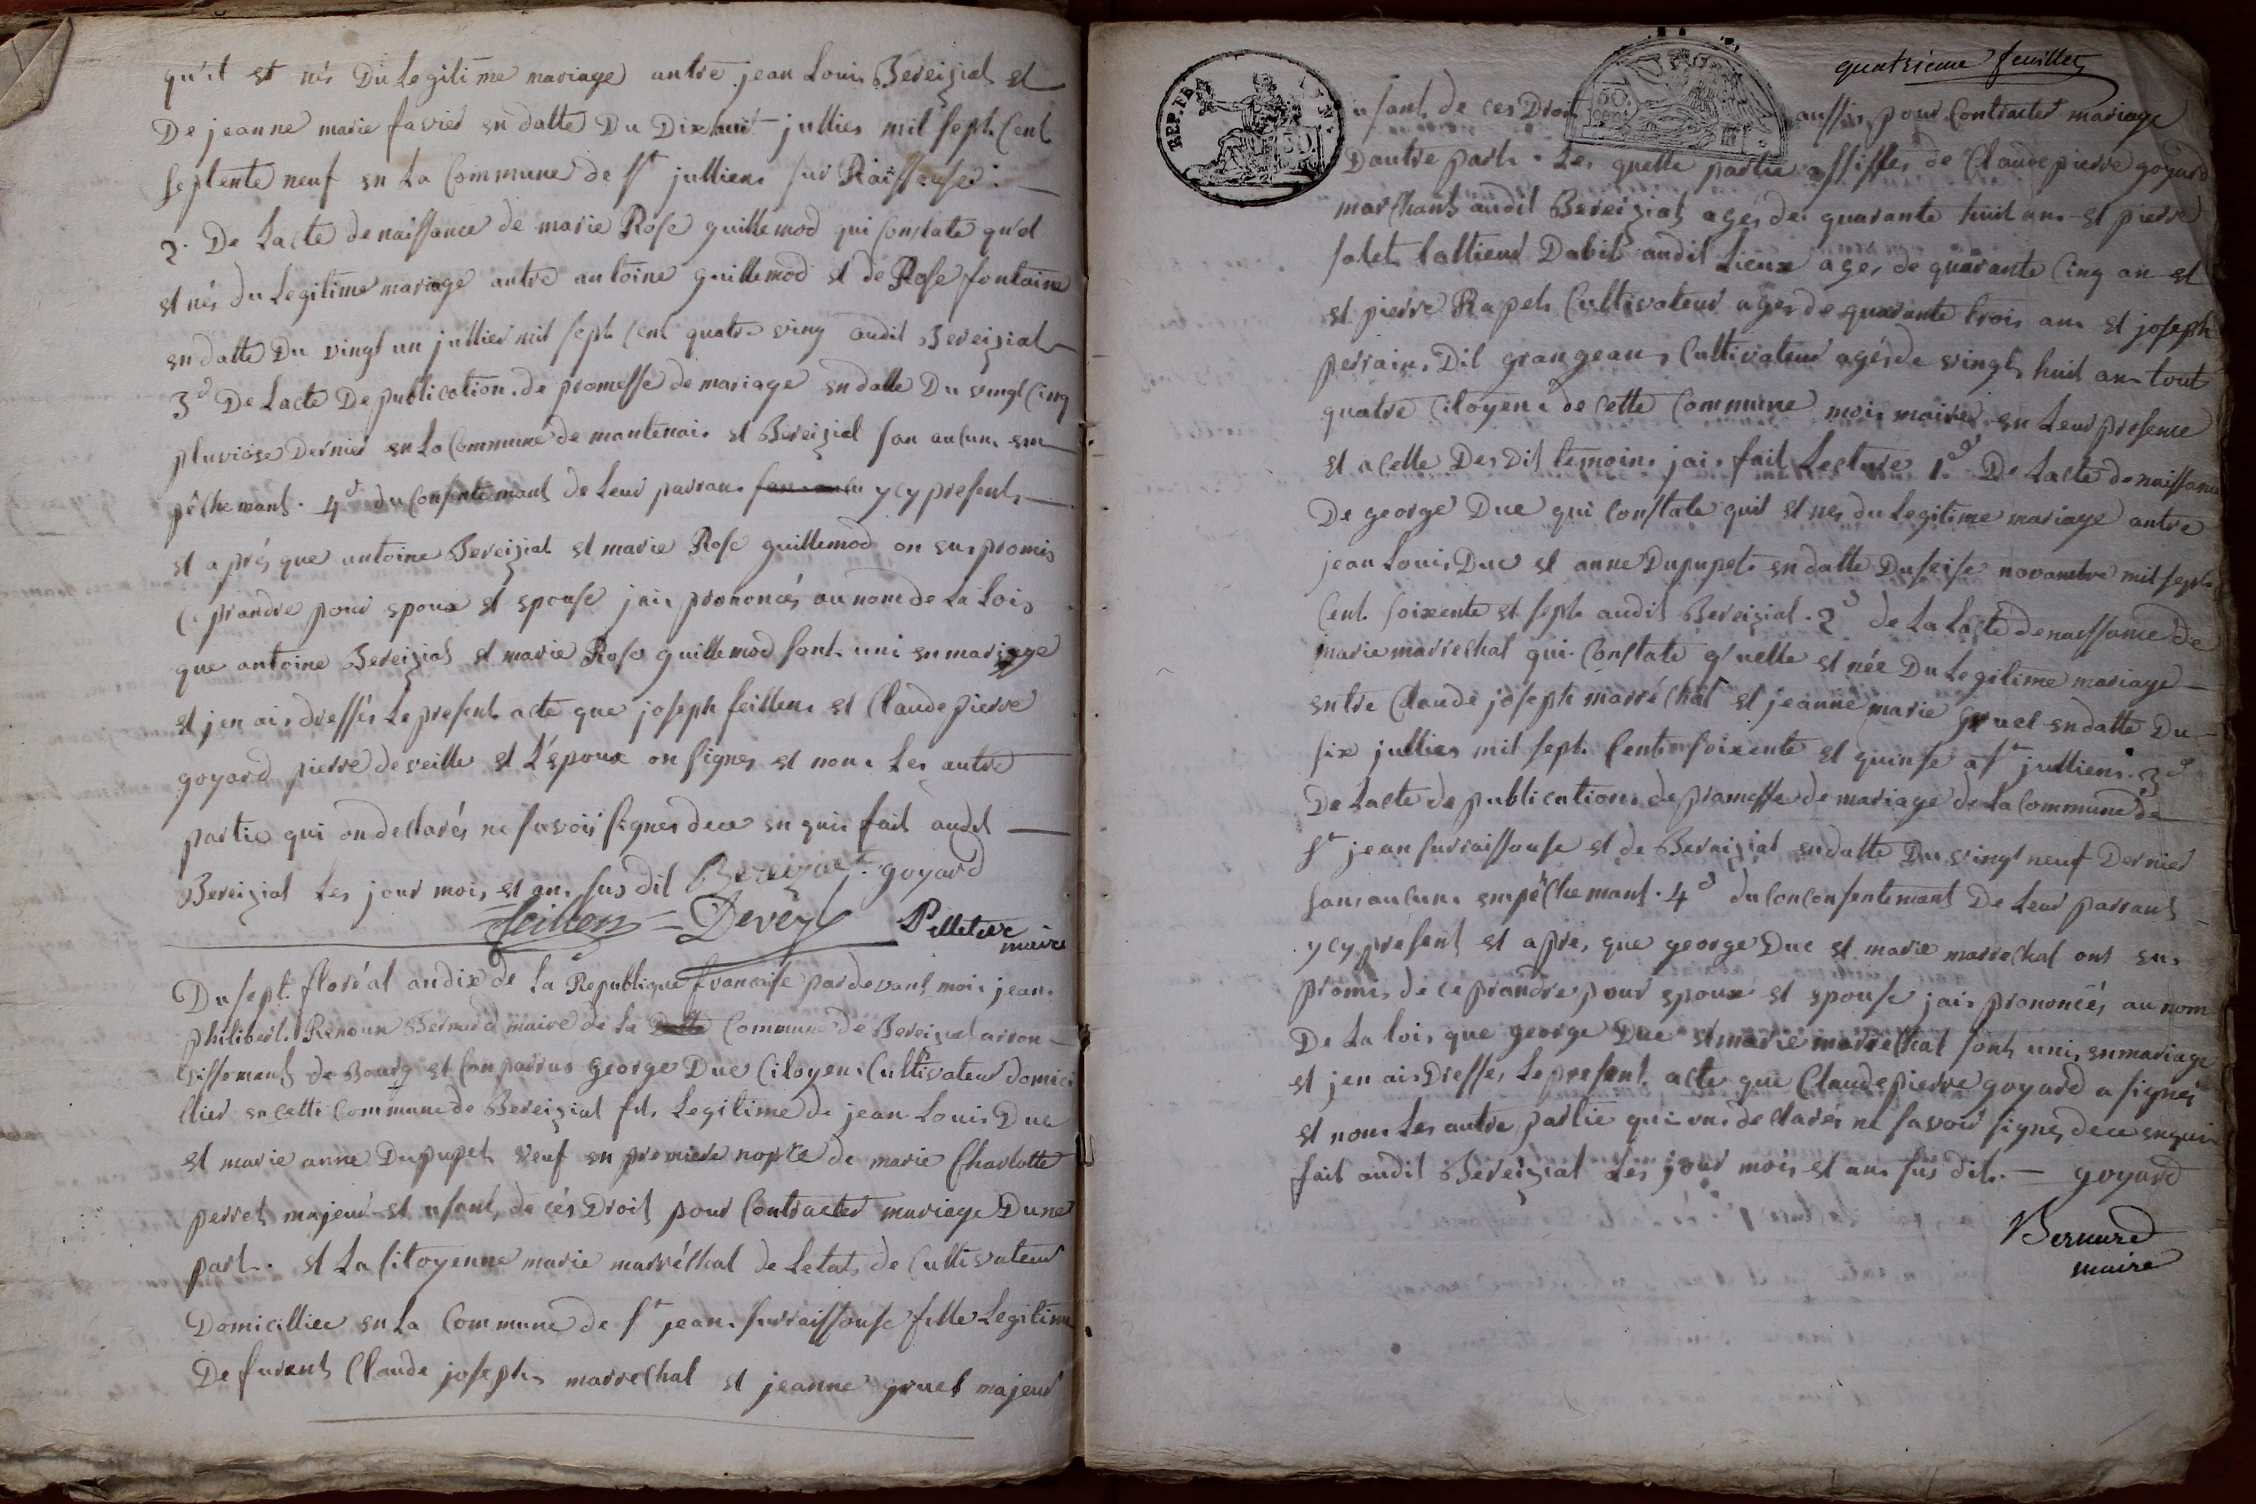 qu'il est nés Du Legitime mariage antre jean Louis Bereiziat et
De jeanne marie favier en datte Du Dixhuit jullier mil sept Cent
septente neuf en La Commune de St jullien sur Raissouse
2. De Lacte de naissance de marie Rose guillemod qui constate qu'el
est nés du Legitime mariage antre antoine guillemod et de Rose fontaine
en datte Du vingt un jullier mil sept Cent quatre ving audit Bereiziat
3d De Lacte De publication de promesse de mariage en datte Du vingt Cinq
pluviose Dernier en La Commune de mantenai et Bereiziat san aucun em
pêchemant. 4d du Consentemant de Leur parrans y cy present
et aprés que antoine Bereiziat et marie Rose guillemod on eu promis
Ce prandre pour epoux et epouse jai prononcés au nom de La Lois
que antoine Bereiziat et marie Rose guillemod sont uni en mariage
et jen ai dressés Le present acte que joseph feillens et Claude pierre
goyard pierre deveille et L'epoux on signes et non Les autre
partie qui on declarés ne savoir signer de ce enquis fait audit
Bereiziat Les jour mois et an sus dit Bereiziat goyard
feillens Devey Pelletier
maire
Du sept floréal an dix de La Republique francaise pardevant moi jean
philibert Renoux Bernard maire de La Commune de Bereiziat arron
dissemant de Bourg et Conparrus george Duc Citoyen Cultivateur domici
llier en cette Commune de Bereiziat fils Legitime de jean Louis Duc
et marie anne Dupupet veuf en premiere nopce de marie Charlotte
perret majeur et usant de cés Droit pour Contracter mariage Dune
part. et La Citoyenne marie marréchal de Letat de Cultivateur
Domicilliee en La Commune de St jean surraissouse fille Legitime
De furent Claude joseph marrechal et jeanne gruel majeur
quatriéme feuillet
REP. FRA.
usant de ces Droit aussi pour Contracter mariage
Dautre part. Les quelle partie assistes de Claude pierre goyard
marchant audit Bereiziat agés de quarante huit an et pierre
solet tallieur Dabit audit Lieux ages de quarante Cinq an et
et pierre Rapet Cultivateur ages de quarante trois an et joseph
perrain Dit grangean Cultivateur agés de vingt huit an tout
quatre Citoyen de Cette Commune moi maire en Leur presence
et a celle Des Dit temoin jai fait Lecture 1d De Lacte de naissance
De george Duc qui Constate quil et nes du Legitime mariage antre
jean Louis Duc et anne Dupupet en datte Du seise novambre mil sept
Cent soixente et sept audit Bereiziat. 2d de La Lacte de naissance de
marie marrechal qui Constate q'uelle et née Du Legitime mariage
entre Claude joseph marréchal et jeanne marie gruel en datte Du
six jullier mil sept Cent soixente et quinse a St jullien. 3d
De Lacte de publication de promesse de mariage de La Commune de
St jean surraissouse et de Bereiziat en datte Du vingt neuf Dernier
sans aucun empêchemant. 4d du Conconsentemant De Leur parrant
y cy présent et apre que george Duc et marie marrechal ont eu
promis de ce prandre pour epoux et epouse jai prononcés au nom
De La lois que george Duc et marie marrechal sont unis en mariage
et jen ai Dresses Le present acte que Claude pierre goyard a signés
et non Les autre partie qui on declarés ne savoir signer de ce enquis
fait audit Bereiziat Les jour mois et an sus dit. goyard
Bernard
maire